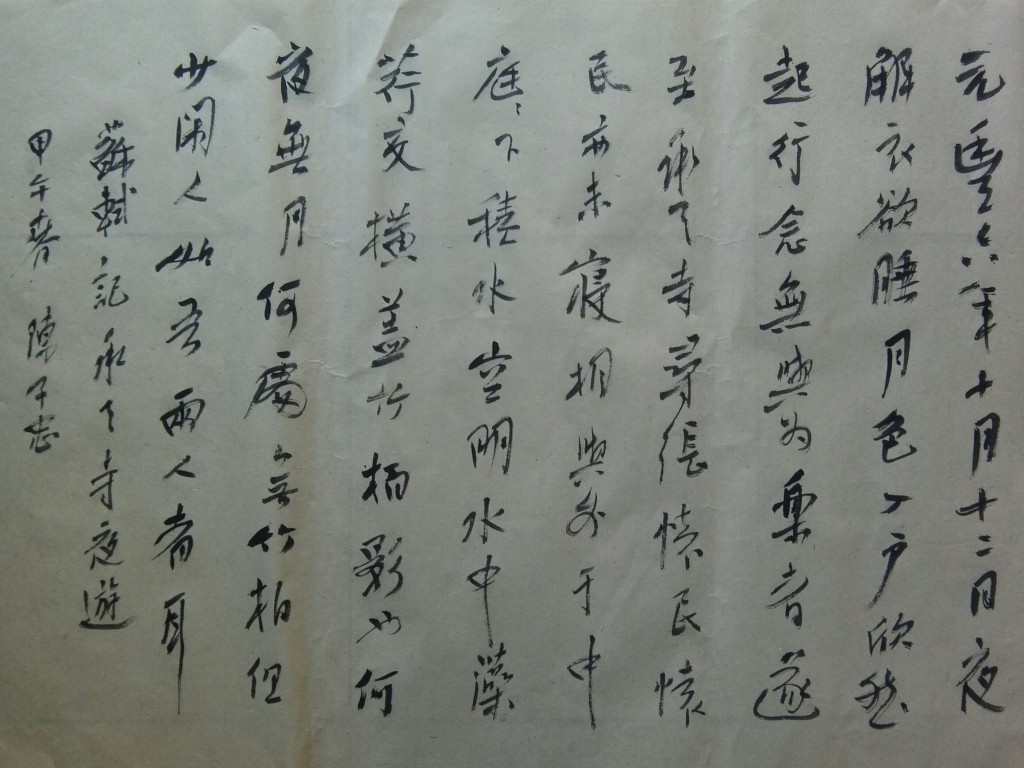 元豐六年十月十二日夜
解衣欲睡月色入户欣然
起行念無與為樂者遂
至承天寺尋張懷民懷
民亦未寢相與步于中
庭〻下積水空明水中藻
荇交橫蓋竹柏影也何
夜無月何處無竹柏但
少閑人如吾兩人者耳
蘇軾記承天寺夜遊
甲午春 陳